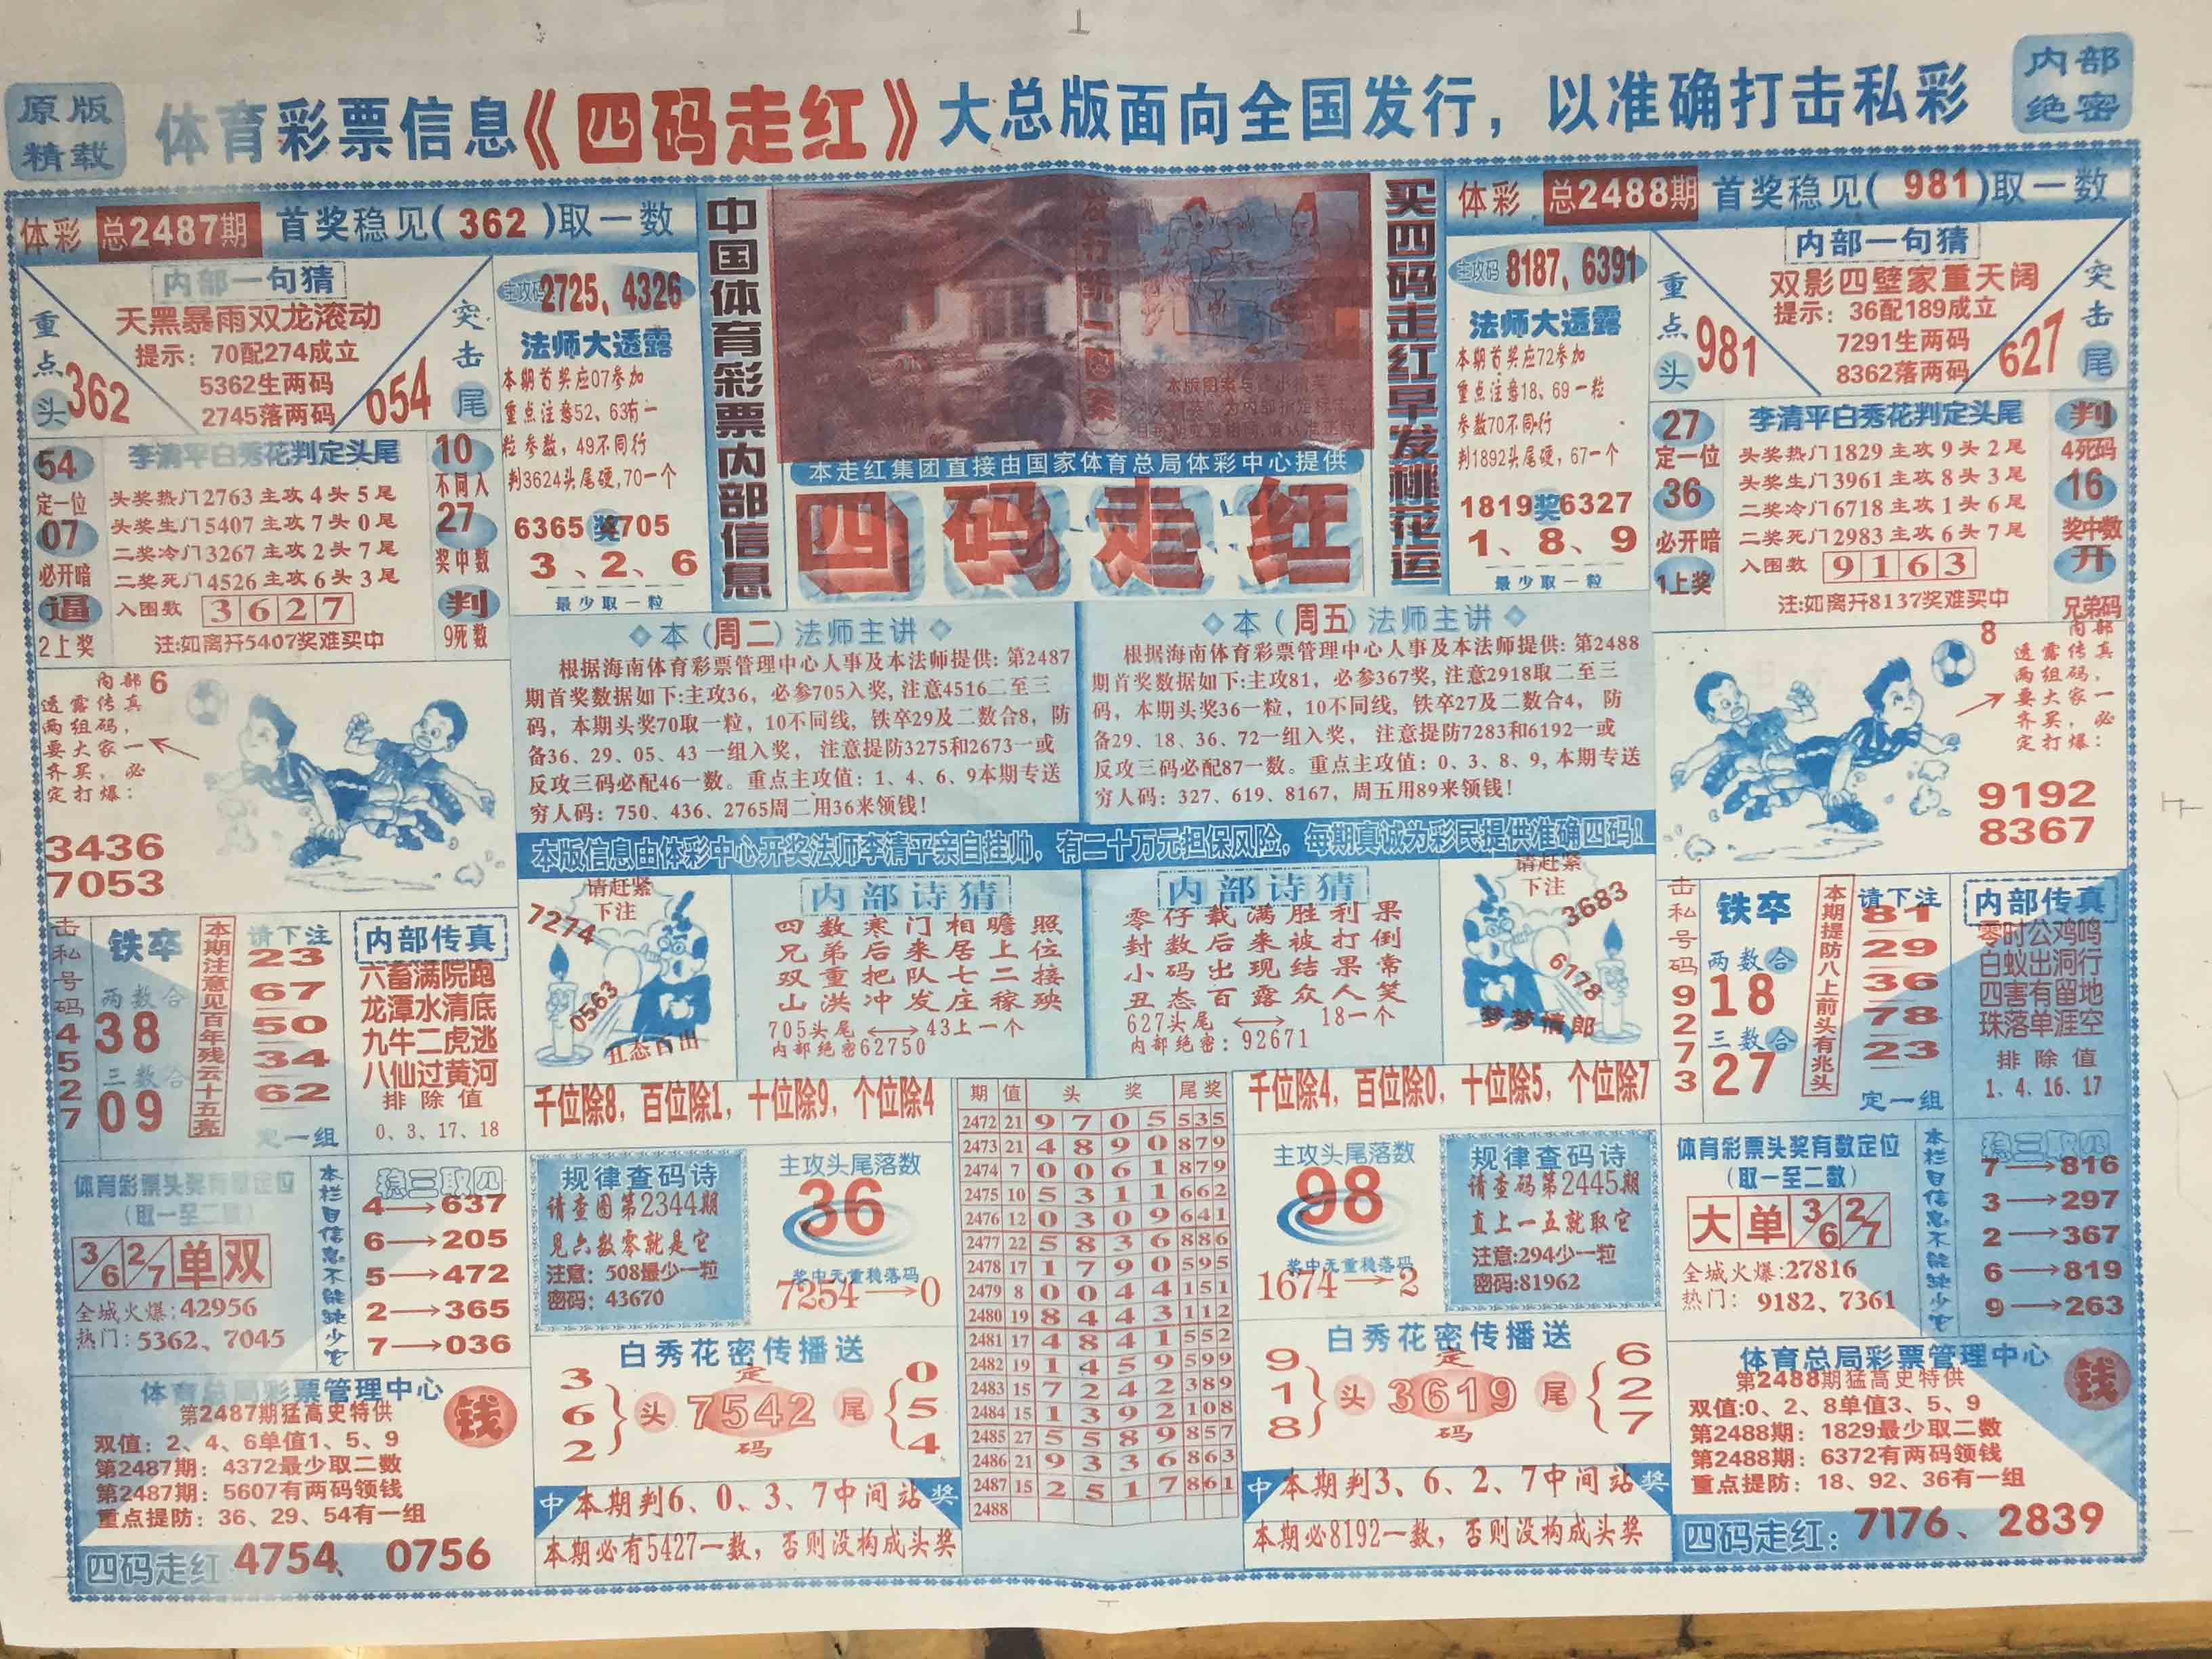 原版
精载
体育彩票信息《四码走红》大总版面向全国发行，以准确打击私彩
内部
绝密
体彩 总2487期 首奖稳见(362)取一数
内部一句猜
天黑暴雨双龙滚动
提示：70配274成立
5362生两码
2745落两码
重点头
362
突击尾
054
主攻码2725、4326
法师大透露
本期首奖应07参加
重点注意52、63有一
粒参数，49不同行
判3624头尾硬，70一个
6365奖705
3、2、6
最少取一粒
54
定一位
07
必开暗
逼
2上奖
李清平白秀花判定头尾
头奖热门2763主攻4头5尾
头奖生门5407主攻7头0尾
二奖冷门3267主攻2头7尾
二奖死门4526主攻6头3尾
入围数 3 6 2 7
注:如离开5407奖难买中
10
不同入
27
奖中数
判
9死数
中国体育彩票内部信息
本走红集团直接由国家体育总局体彩中心提供
四码走红
买四码走红早发桃花运
体彩 总2488期 首奖稳见(981)取一数
主攻码8187、6391
法师大透露
本期首奖应72参加
重点注意18、69一粒
参数70不同行
判1892头尾硬，67一个
1819奖6327
1、8、9
最少取一粒
内部一句猜
双影四壁家重天阔
提示：36配189成立
7291生两码
8362落两码
重点头
981
突击尾
627
27
定一位
36
必开暗
1上奖
李清平白秀花判定头尾
头奖热门1829主攻9头2尾
头奖生门3961主攻8头3尾
二奖冷门6718主攻1头6尾
二奖死门2983主攻6头7尾
入围数 9 1 6 3
注:如离开8137奖难买中
判
4死码
16
奖中数
开
兄弟码
内部6
透露传真
两组码，
要大家一
齐买，必
定打爆：
3436
7053
本(周二)法师主讲
根据海南体育彩票管理中心人事及本法师提供：第2487
期首奖数据如下:主攻36，必参705入奖，注意4516二至三
码，本期头奖70取一粒，10不同线，铁卒29及二数合8，防
备36、29、05、43一组入奖，注意提防3275和2673一或
反攻三码必配46一数。重点主攻值：1、4、6、9本期专送
穷人码：750、436、2765周二用36来领钱！
本(周五)法师主讲
根据海南体育彩票管理中心人事及本法师提供：第2488
期首奖数据如下:主攻81，必参367奖，注意2918取二至三
码，本期头奖36一粒，10不同线，铁卒27及二数合4，防
备29、18、36、72一组入奖，注意提防7283和6192一或
反攻三码必配87一数。重点主攻值：0、3、8、9，本期专送
穷人码：327、619、8167，周五用89来领钱！
8 内部
透露传真
两组码，
要大家一
齐买，必
定打爆：
9192
8367
本版信息由体彩中心开奖法师李清平亲自挂帅，有二十万元担保风险，每期真诚为彩民提供准确四码！
击私号码45277
铁卒
两数合
38
三数合
09
本期注意见百年残云十五亮
请下注
23
67
50
34
62
定一组
内部传真
六畜满院跑
龙潭水清底
九牛二虎逃
八仙过黄河
排除值
0、3、17、18
请赶紧
下注
7274
0563
丑态百出
内部诗猜
四数寒门相瞻照
兄弟后来居上位
双重把队七二接
山洪冲发庄稼殃
705头尾⟷43上一个
内部绝密62750
内部诗猜
零仔载满胜利果
封数后来被打倒
小码出现结果常
丑态百露众人笑
627头尾⟷18一个
内部绝密：92671
请赶紧
下注
3683
6178
梦梦情郎
击私号码9273
铁卒
两数合
18
三数合
27
本期提防八上前头有兆头
请下注
81
29
36
78
23
定一组
内部传真
零时公鸡鸣
白蚁出洞行
四害有留地
珠落单涯空
排除值
1、4、16、17
千位除8，百位除1，十位除9，个位除4
千位除4，百位除0，十位除5，个位除7
体育彩票头奖有数定位
(取一至二数)
3/6 2/7 单 双
全城火爆:42956
热门：5362、7045
本栏目信息不能缺少它
稳三取四
4→637
6→205
5→472
2→365
7→036
规律查码诗
请查图第2344期
见六数零就是它
注意：508最少一粒
密码：43670
主攻头尾落数
36
奖中无重稳落码
7254→0
期 值 头奖 尾奖
2472 21 9 7 0 5 535
2473 21 4 8 9 0 879
2474 7 0 0 6 1 879
2475 10 5 3 1 1 662
2476 12 0 3 0 9 641
2477 22 5 8 3 6 886
2478 17 1 7 9 0 595
2479 8 0 0 4 4 151
2480 19 8 4 4 3 112
2481 17 4 8 4 1 552
2482 19 1 4 5 9 599
2483 15 7 2 4 2 389
2484 15 1 3 9 2 108
2485 27 5 5 8 9 857
2486 21 9 3 3 6 863
2487 15 2 5 1 7 861
2488
主攻头尾落数
98
奖中无重稳落码
1674→2
规律查码诗
请查码第2445期
直上一五就取它
注意:294少一粒
密码:81962
体育彩票头奖有数定位
(取一至二数)
大 单 3/6 2/7
全城火爆:27816
热门：9182、7361
本栏目信息不能缺少它
稳三取四
7→816
3→297
2→367
6→819
9→263
体育总局彩票管理中心
第2487期猛高史特供
钱
双值：2、4、6单值1、5、9
第2487期：4372最少取二数
第2487期：5607有两码领钱
重点提防：36、29、54有一组
四码走红：4754、0756
白秀花密传播送
3 6 2 头 定 7542 码 尾 0 5 4
中 本期判6、0、3、7中间站 奖
本期必有5427一数，否则没构成头奖
白秀花密传播送
9 1 8 头 定 3619 码 尾 6 2 7
中 本期判3、6、2、7中间站 奖
本期必8192一数，否则没构成头奖
体育总局彩票管理中心
第2488期猛高史特供
钱
双值:0、2、8单值3、5、9
第2488期：1829最少取二数
第2488期：6372有两码领钱
重点提防：18、92、36有一组
四码走红：7176、2839